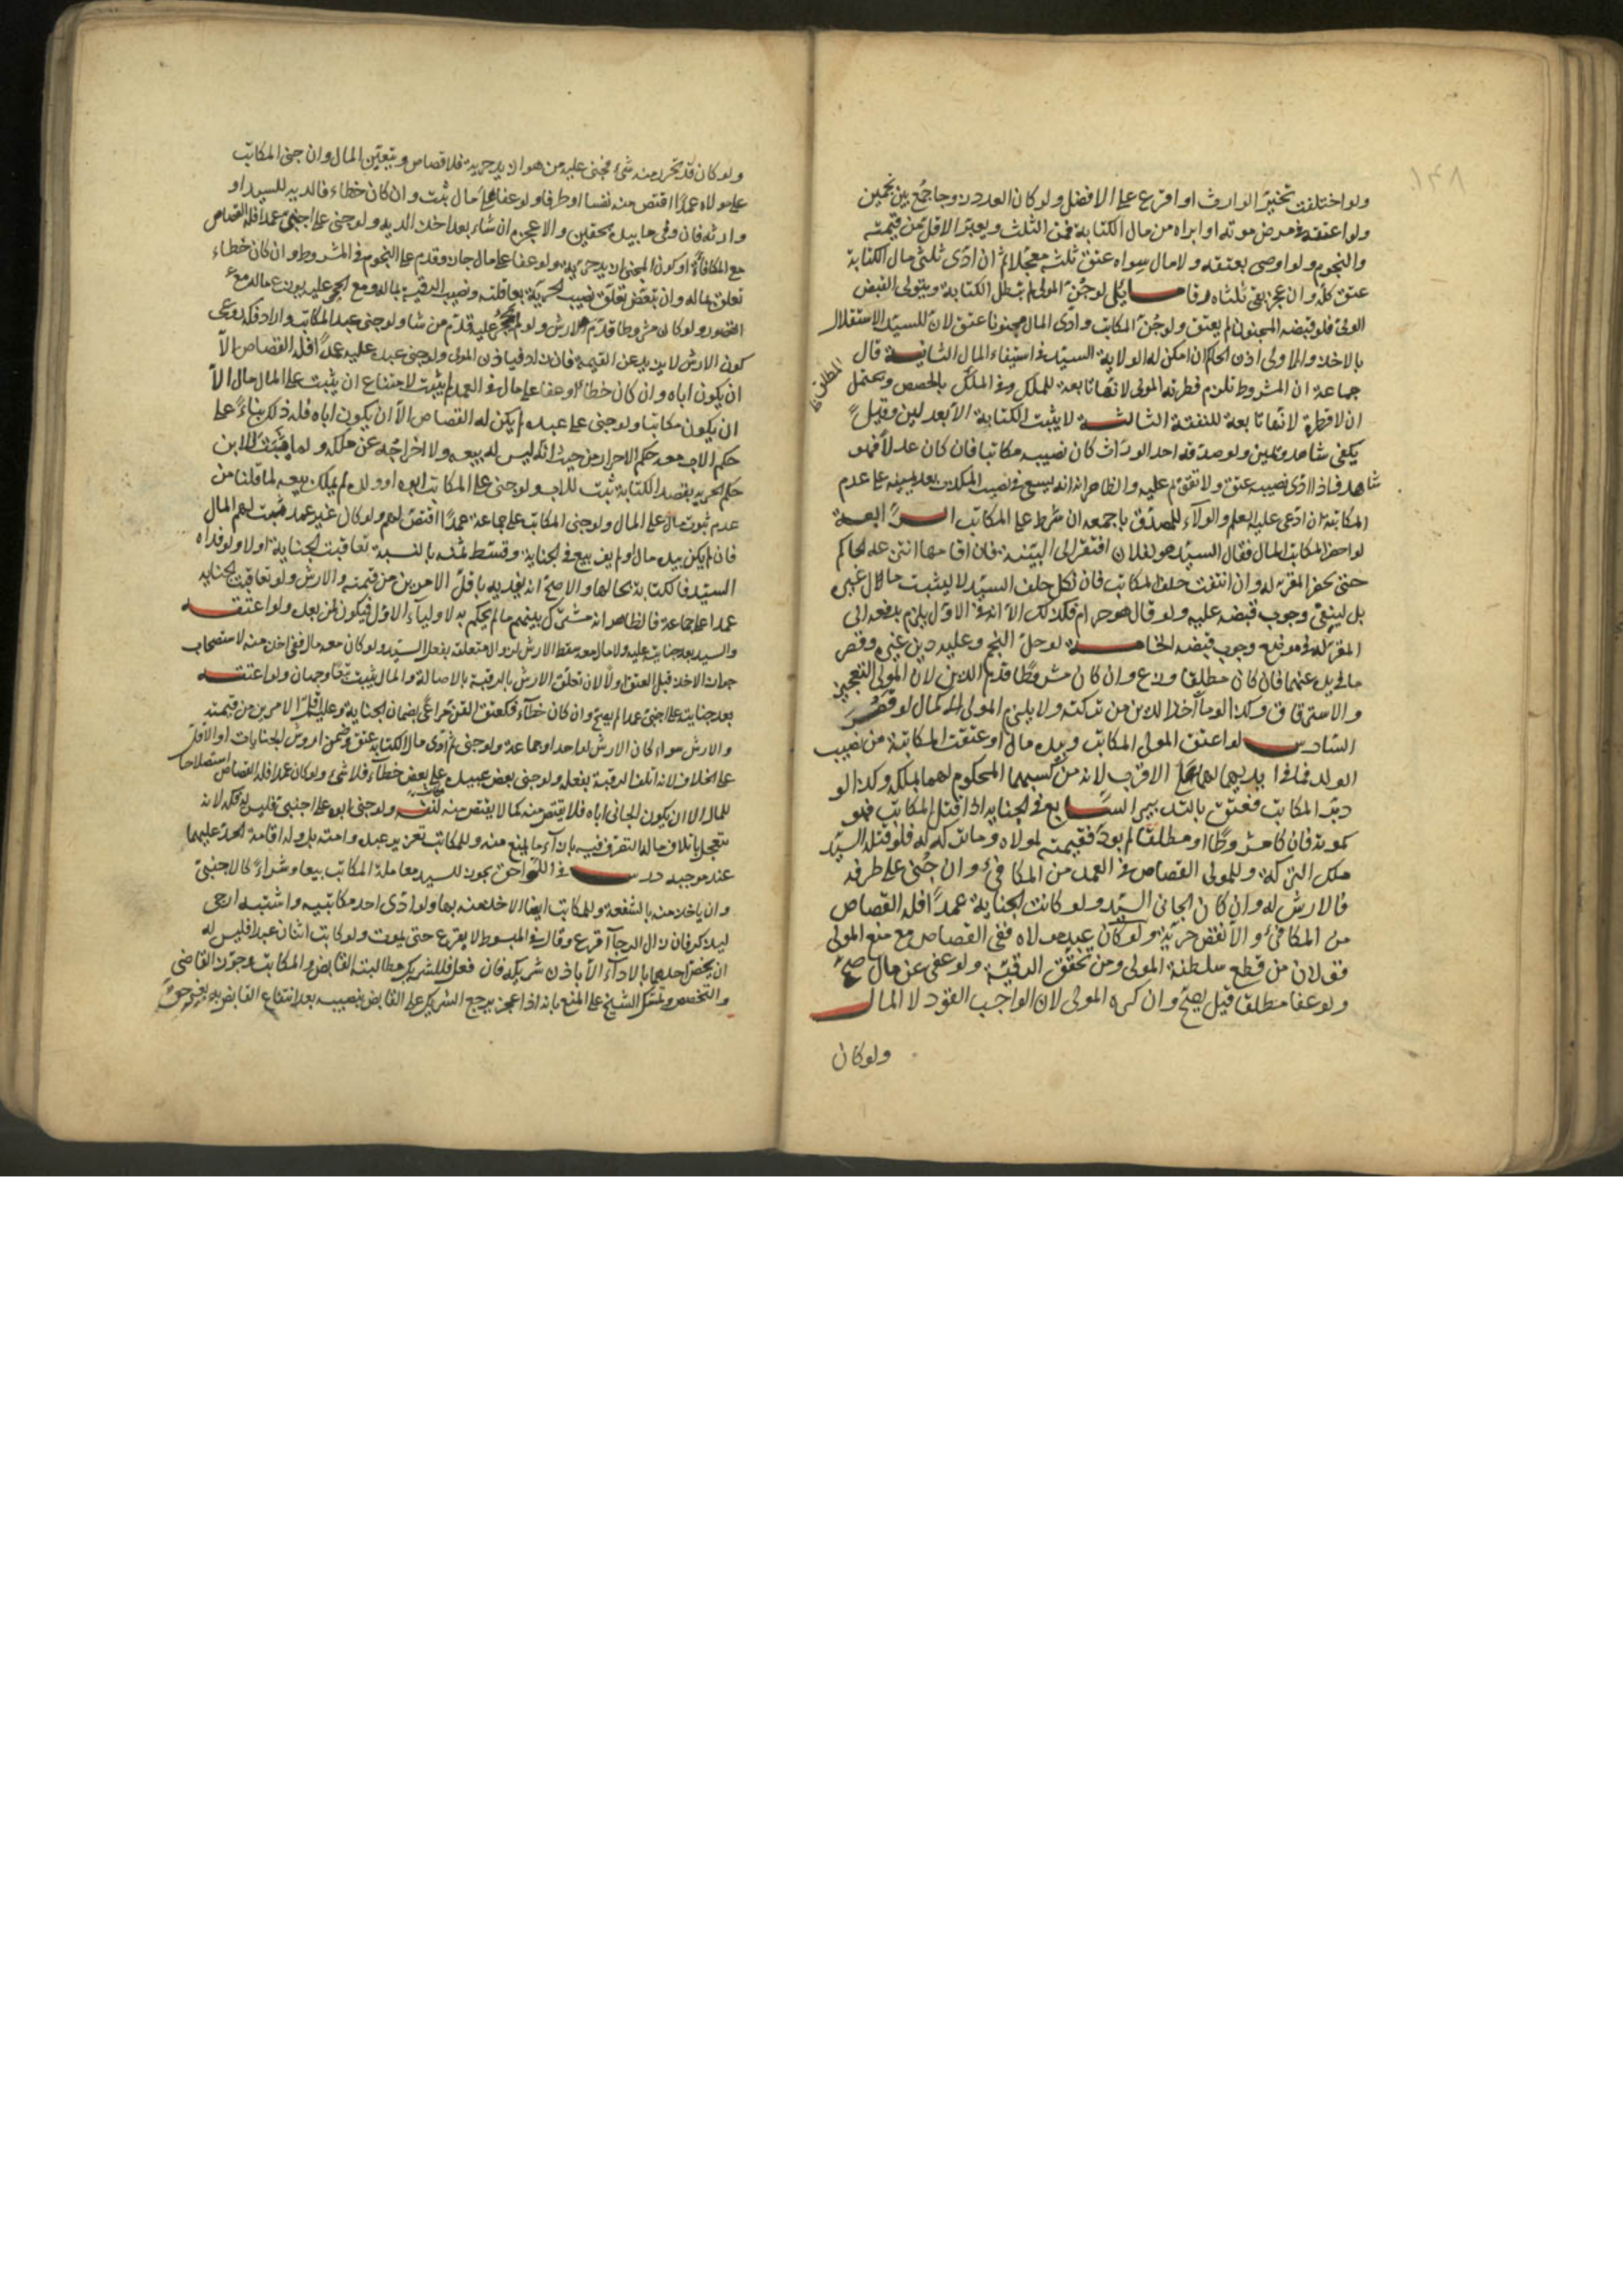 ١٤٨
ولو اختلفت تخير الوارث او اقرع على الافضل ولو كان العدد زوجا جمع بين نجمين
ولو اعتقه في مرض موته او ابراه من مال الكتابة فمن الثلث ويعتبر الاقل من قيمته
والنجوم ولو اوصى بعتقه ولا مال سواه عتق ثلثه معجلا ثم ان ادى ثلثي مال الكتابة
عتق كله وان عجز بقي ثلثاه رقا مسايل لو جن المولى لم تبطل الكتابة ويتولى القبض
الولي فلو قبضه المجنون لم يعتق ولو جن المكاتب وادى المال مجنونا عتق لان للسيد الاستقلال
بالاخذ والاولى اذن الحاكم ان امكن له الولاية السيد في استيفاء المال الثانية قال
المطلق ظ
جماعة ان المشروط تلزم فطرته المولى لانها تابعة للملك وفي الملك بالحصص ويحتمل
ان لا فطرة لانها تابعة للنفقة الثالثة لا يثبت الكتابة الا بعدلين وقيل
يكفي شاهد ويمين ولو صدقه احد الوراث كان نصيبه مكاتبا فان كان عدلا فهو
شاهد فاذا ادى نصيبه عتق ولا تقوم عليه والظاهر انه يسعى في نصيب المكذب بعد يمينه على عدم
المكاتبة ان ادعى عليه العلم والولاء للمصدق باجمعه ان شرط على المكاتب الرابعة
لو احضر المكاتب المال فقال السيد هو لفلان افتقر الى البينة فان اقامها انتزعه الحاكم
حتى يحضر المقر له وان انتفت حلف المكاتب فان نكل حلف السيد لا ليثبت مال غيره
بل لينفي وجوب قبضه عليه ولو قال هو حرام فكذلك الا انه في الاول يلزم بدفعه الى
المقر له في موضع وجوب قبضه الخامسة لو حل النجم وعليه دين غيره وقصر
ما في يده عنهما فان كان مطلقا وزع وان كان مشروطا قدم الدين لان للمولى التعجيز
والاسترقاق وكذا لو مات اخذ الدين من تركته ولا يلزم المولى الاكمال لو قصر
السادسة لو اعتق المولى المكاتب وبيده مال او عتقت المكاتبة من نصيب
الولد فما في ايديهما لهما على الاقرب لانه من كسبهما المحكوم لهما بملكه وكذا لو
دبر المكاتب فعتق بالتدبير السابع في الجناية اذا قتل المكاتب فهو
كموته فان كان مشروطا او مطلقا لم يؤد فقيمته لمولاه وما تركه له فلو قتله السيد
ملك التركة وللمولى القصاص في العمد من المكافئ وان جنى على طرفه
فالارش له وان كان الجاني السيد ولو كانت الجناية عمدا فله القصاص
من المكافئ والانقص حرية ولو كان عبد مولاه ففي القصاص مع منع المولى
قولان من قطع سلطنة المولى ومن تحقق الرقية ولو عفى عن مال صح
ولو عفا مطلقا قيل يصح وان كره المولى لان الواجب القود لا المال
ولو كان
ولو كان قد تحرر منه شيء فجنى عليه من هو ازيد حرية فلا قصاص ويتعين المال وان جنى المكاتب
على مولاه عمدا اقتص منه نفسا او طرفا ولو عفا على مال ثبت وان كان خطاء فالدية للسيد او
وارثه فان وفى ما بيده بحقين والا عجزه ان شاء بعد اخذ الدية ولو جنى على اجنبي عمدا فله القصاص
مع المكافأة او كون المجني ازيد حرية ولو عفا على مال جاز وقدم على النجوم في المشروط وان كان خطاء
تعلق بماله وان تبعض تعلق نصيب الحرية بعاقلته ونصيب الرقية بماله ومع الحجر عليه يوزع ماله مع
القصور ولو كان مشروطا قدم الارش ولو لم يحجر عليه قدم من شا ولو جنى عبد المكاتب واراد فكه روعي
كون الارش لا يزيد عن القيمة فان زاد فباذن المولى ولو جنى عبده عليه عمدا فله القصاص الا
ان يكون اباه وان كان خطاء او عفا على مال في العمد لم يثبت لامتناع ان يثبت على المال مال الا
ان يكون مكاتبا ولو جنى على عبده لم يكن له القصاص الا ان يكون اباه فله ذلك بناء على
حكم الاب معه حكم الاحرار من حيث انه ليس له بيعه ولا اخراجه عن ملكه ولما يثبت للابن
حكم الحرية بقصد الكتابة ثبت للاب ولو جنى على المكاتب ابوه او ولده لم يملك بيعه لما قلنا من
عدم ثبوت مال على المال ولو جنى المكاتب على جماعة عمدا اقتص لهم ولو كان غير عمد فيثبت لهم المال
فان لم يكن بيده مال او لم يف بيع في الجناية وقسط ثمنه بالنسبة تعاقبت الجناية اولا ولو فداه
السيد فالكتابة بحالها والاصح انه يفديه باقل الامرين من قيمته والارش ولو تعاقبت الجناية
عمدا على جماعة فالظاهر انه مشترك بينهم ما لم يحكم به لاولياء الاول فيكون لمن بعده ولو اعتقه
السيد بعد جنايته عليه ولا مال معه سقط الارش لزوال متعلقه بفعل السيد ولو كان معه مال ففي اخذه منه لاستصحاب
جواز الاخذ قبل العتق اولا لان تعلق الارش بالرقبة بالاصالة والمال يثبت تبعا وجهان ولو اعتقه
بعد جنايته على اجنبي عمدا لم يصح وان كان خطاء فكعتق القن مراعى بضمان الجناية وعليه اقل الامرين من قيمته
والارش سواء كان الارش لواحد او جماعة ولو جنى ثم ادى مال الكتابة عتق وضمن اروش الجنايات او الاقل
على الخلاف لانه اتلف الرقبة بفعله ولو جنى بعض عبيده على بعض خطاء فلا شيء ولو كان عمدا فله القصاص استصلاحا
للمال الا ان يكون الجاني اباه فلا يقتص منه كما لا يقتص منه لنفسه ولو جنى ابوه على اجنبي فليس له فكه لانه
يتعجل باتلاف ماله التصرف فيه بازاء ما يمنع منه وللمكاتب تعزير عبده وامته بل وله اقامة الحد عليهما
عند موجبه درس في اللواحق يجوز للسيد معاملة المكاتب بيعا وشراء كالاجنبي
وان ياخذ منه بالشفعة وللمكاتب ايضا الاخذ منه بها ولو ادى احد مكاتبيه واشتبه ارجى
ليذكر فان زال الرجاء اقرع وقال في المبسوط لا يقرع حتى يموت ولو كاتب اثنان عبدا فليس له
ان يخص احدهما بالاداء الا باذن شريكه فان فعل فللشريك مطالبته القابض والمكاتب وجوز القاضي
والتخصص وتمسك الشيخ على المنع بانه اذا عجز يرجع الشريك على القابض بنصيبه بعد انتفاع القابض به بغير حق